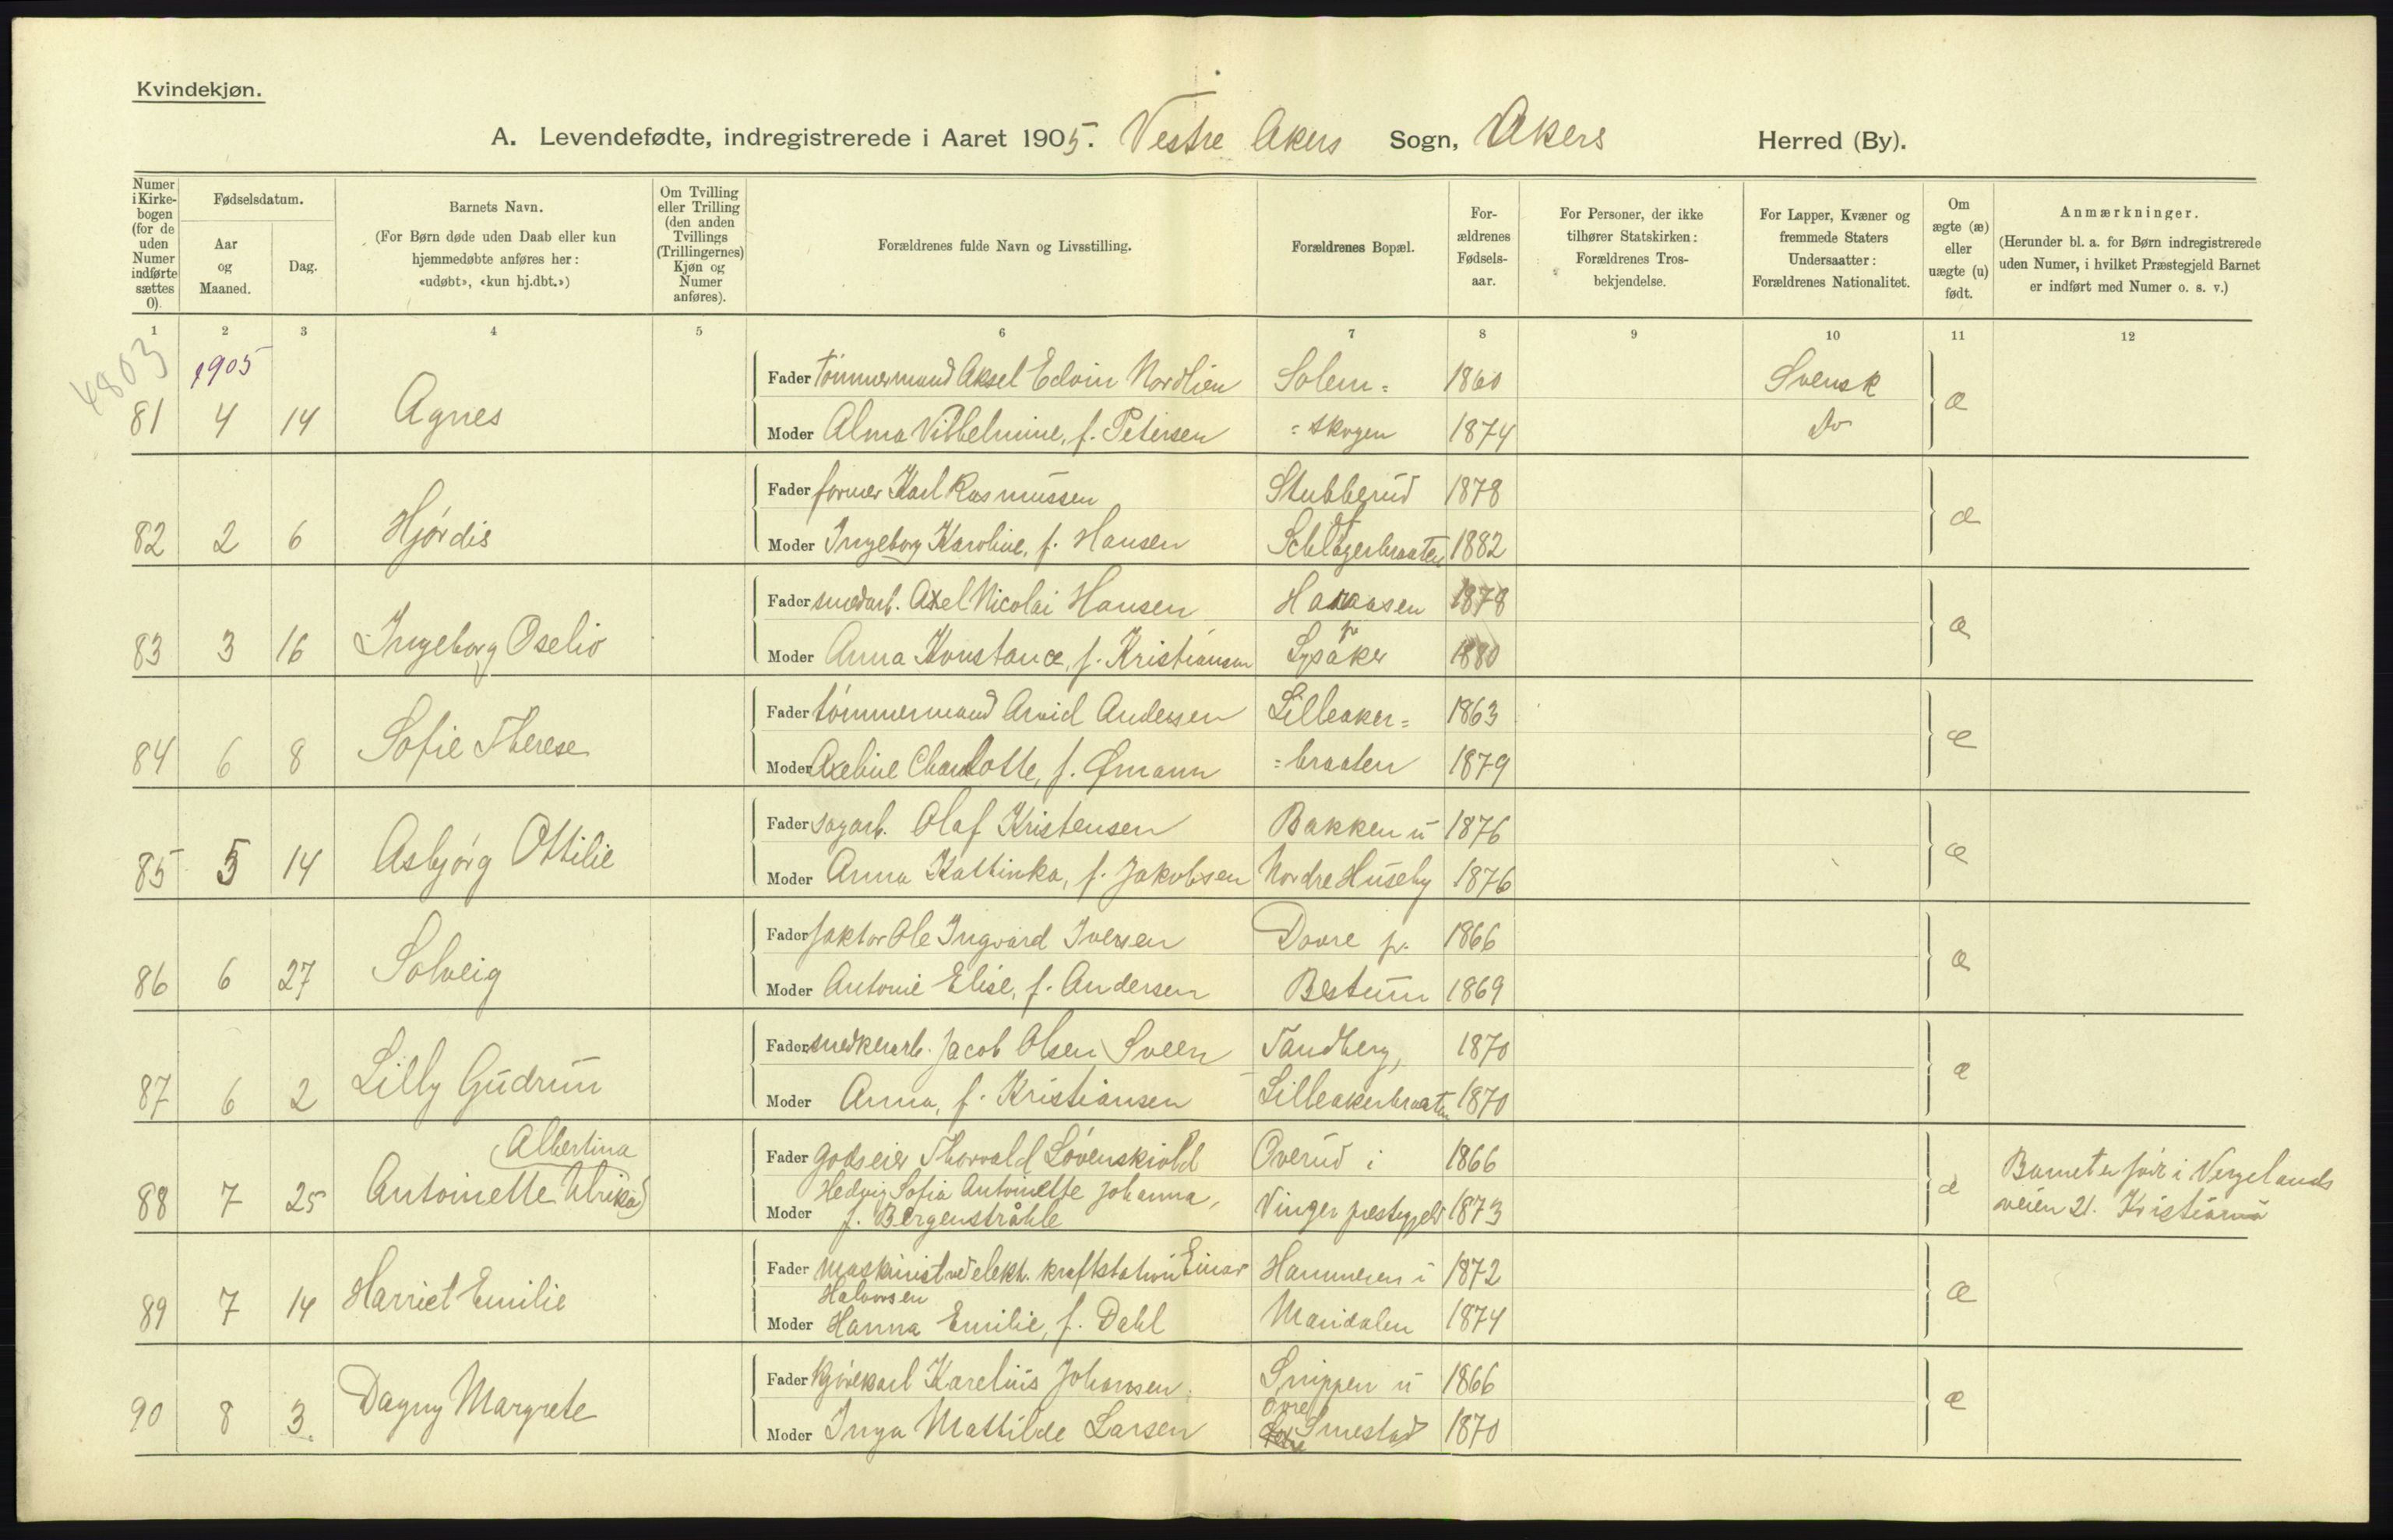 Kvindekjøn.
A. Levendefødte, indregistrerede i Aaret 1905. Vestre Akers Sogn, Akers Herred (By).
Numer i Kirke-bogen (for de uden Numer indførte sættes 0).
Fødselsdatum.
Aar og Maaned.
Dag.
Barnets Navn.
(For Børn døde uden Daab eller kun hjemmedøbte anføres her: «udøbt», «kun hj.dbt.»)
Om Tvilling eller Trilling (den anden Tvillings (Trillingernes) Kjøn og Numer anføres).
Forældrenes fulde Navn og Livsstilling.
Forældrenes Bopæl.
For-ældrenes Fødsels-aar.
For Personer, der ikke tilhører Statskirken: Forældrenes Tros-bekjendelse.
For Lapper, Kvæner og fremmede Staters Undersaatter: Forældrenes Nationalitet.
Om ægte (æ) eller uægte (u) født.
Anmærkninger.
(Herunder bl. a. for Børn indregistrerede uden Numer, i hvilket Præstegjeld Barnet er indført med Numer o. s. v.)
1 2 3 4 5 6 7 8 9 10 11 12
4803
1905
Fader tømmermand Aksel Edvin Nordlien Solem= 1860 Svensk
81 4 14 Agnes æ
Moder Alma Vilhelmine, f. Petersen =skogen 1874 Do
Fader former Karl Rasmussen Stubberud 1878
82 2 6 Hjørdis æ
Moder Ingeborg Karoline, f. Hansen 1882
Fader smedarb. Axel Nicolai Hansen Haraasen 1878
83 3 16 Ingeborg Oselio æ
Moder Anna Konstance, f. Kristiansen pr Lysaker 1880
Fader tømmermand Arvid Andersen Lilleaker= 1863
84 6 8 Sofie Therese æ
Moder Axeline Charlotte, f. Ømann =braaten 1879
Fader sagarb. Olaf Kristensen Bakken u 1876
85 5 14 Asbjørg Ottilie æ
Moder Anna Kattinka, f. Jakobsen Nordre Huseby 1876
Fader faktor Ole Ingvard Iversen Dovre p. 1866
86 6 27 Solveig æ
Moder Antonie Elise, f. Andersen Bestum 1869
Fader snedkerarb. Jacob Olsen Sveen Tandberg, 1870
87 6 2 Lilly Gudrun æ
Moder Anna, f. Kristiansen Lilleakerbraaten 1870
Fader godseier Thorvald Løvenskiold Overud i 1866
88 7 25 Antoinette (Albertina Ulrika) æ
Moder Hedvig Sofia Antoinette Johanna, f. Bergenstråhle Vinger prestegjeld 1873
Barnet er født i Vergelands
veien 21. Kristiania
Fader Maskinist ved elekt. kraftstation Einar Halvorsen Hammeren i 1872
89 7 14 Harriet Emilie æ
Moder Hanna Emilie, f. Dahl Maridalen 1874
Fader Kjørekarl Karelius Johansen Snippen u 1866
90 8 3. Dagny Margrete æ
Moder Inga Mathilde Larsen Øvre Smestad 1870